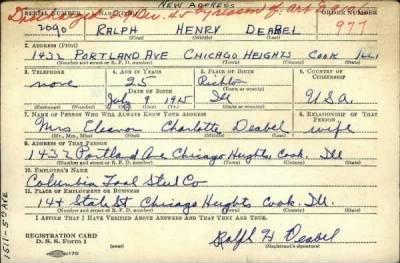 NEW ADDRESS
Discharged Dec. 45
SERIAL NUMBER ORDER NUMBER
2090 RALPH HENRY DEABEL 977
(First) (Middle) (Last)
2. ADDRESS (Print)
1432 PORTLAND AVE CHICAGO HEIGHTS COOK ILL
(Number and street or R. F. D. number) (Town) (County) (State)
3. TELEPHONE 4. AGE IN YEARS 5. PLACE OF BIRTH 6. COUNTRY OF CITIZENSHIP
none 25 Richton
DATE OF BIRTH
July 9 1915 Ill U.S.A.
(Exchange) (Number) (Mo.) (Day) (Yr.) (State or country)
7. NAME OF PERSON WHO WILL ALWAYS KNOW YOUR ADDRESS 8. RELATIONSHIP OF THAT PERSON
Mrs Eleanor Charlotte Deabel wife
(Mr., Mrs., Miss) (First) (Middle) (Last)
9. ADDRESS OF THAT PERSON
1432 Portland Ave Chicago Heights, Cook, Ill
(Number and street or R. F. D. number) (Town) (County) (State)
10. EMPLOYER'S NAME
Columbia Tool Steel Co
11. PLACE OF EMPLOYMENT OR BUSINESS
14 & State St Chicago Heights Cook. Ill.
(Number and street or R. F. D. number) (Town) (County) (State)
I AFFIRM THAT I HAVE VERIFIED ABOVE ANSWERS AND THAT THEY ARE TRUE.
REGISTRATION CARD
D. S. S. Form 1
Ralph H Deabel
(Registrant's signature)
1511-5th AVE